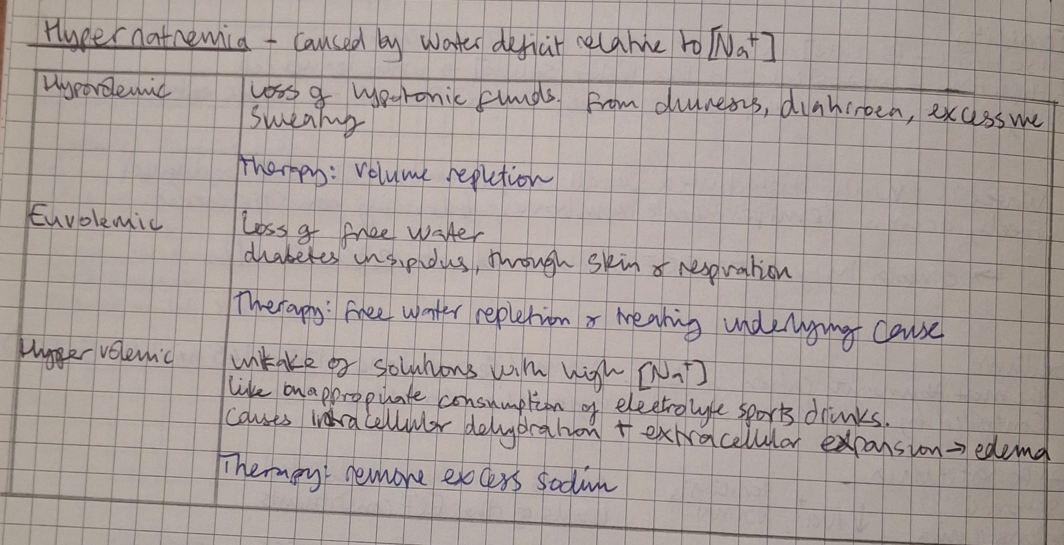 Hypernatremia - caused by water deficit relative to [Na⁺]
Hypovolemic
Loss of hypotonic fluids. From diuresis, diahrroea, excessive
sweating
Therapy: volume repletion
Euvolemic
Loss of free water
diabetes insipidus, through skin & respiration
Therapy: free water repletion & treating underlying cause
Hypervolemic
intake of solutions with high [Na⁺]
like inappropriate consumption of electrolyte sports drinks.
causes intracellular dehydration + extracellular expansion → edema
Therapy: remove excess sodium